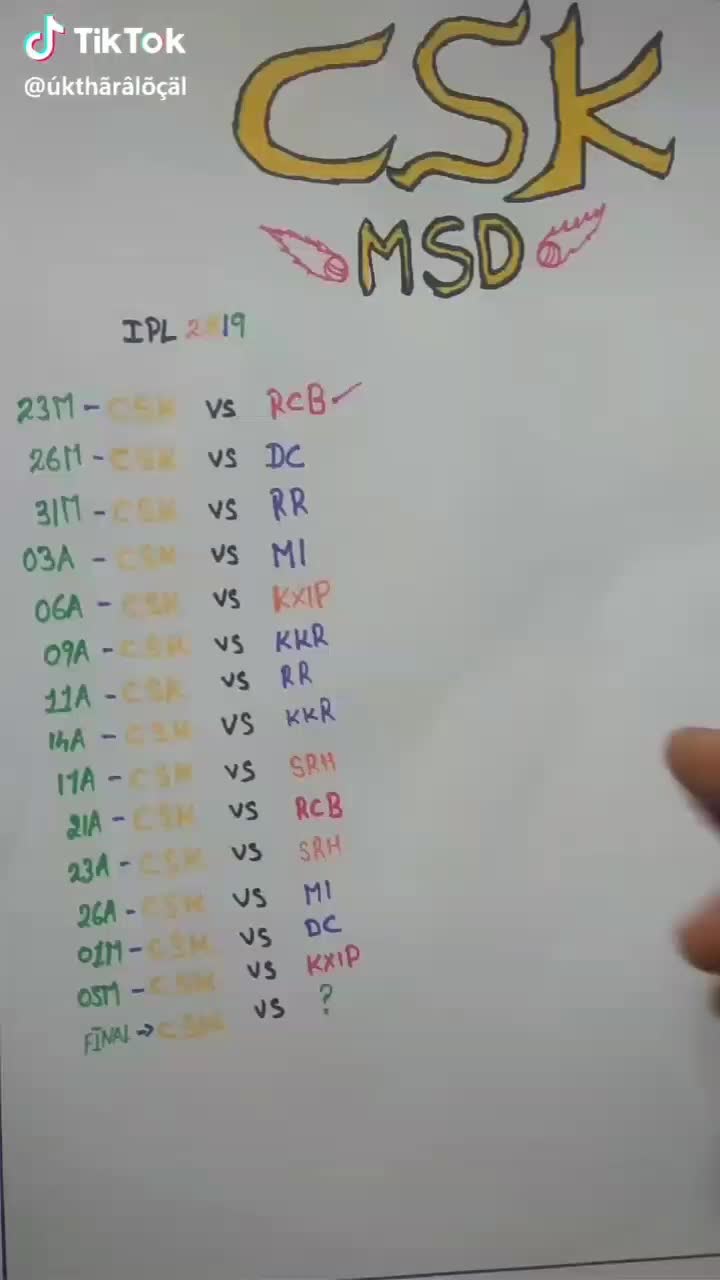 TikTok
@úkthãrâlõçäl
CSK
MSD
IPL 2019
23M - CSK vs RCB ✓
26M - CSK vs DC
31M - CSK vs RR
03A - CSK vs MI
06A - CSK vs KXIP
09A - CSK vs KKR
11A - CSK vs RR
14A - CSK vs KKR
17A - CSK vs SRH
21A - CSK vs RCB
23A - CSK vs SRH
26A - CSK vs MI
01M - CSK vs DC
05M - CSK vs KXIP
FINAL → CSK vs ?